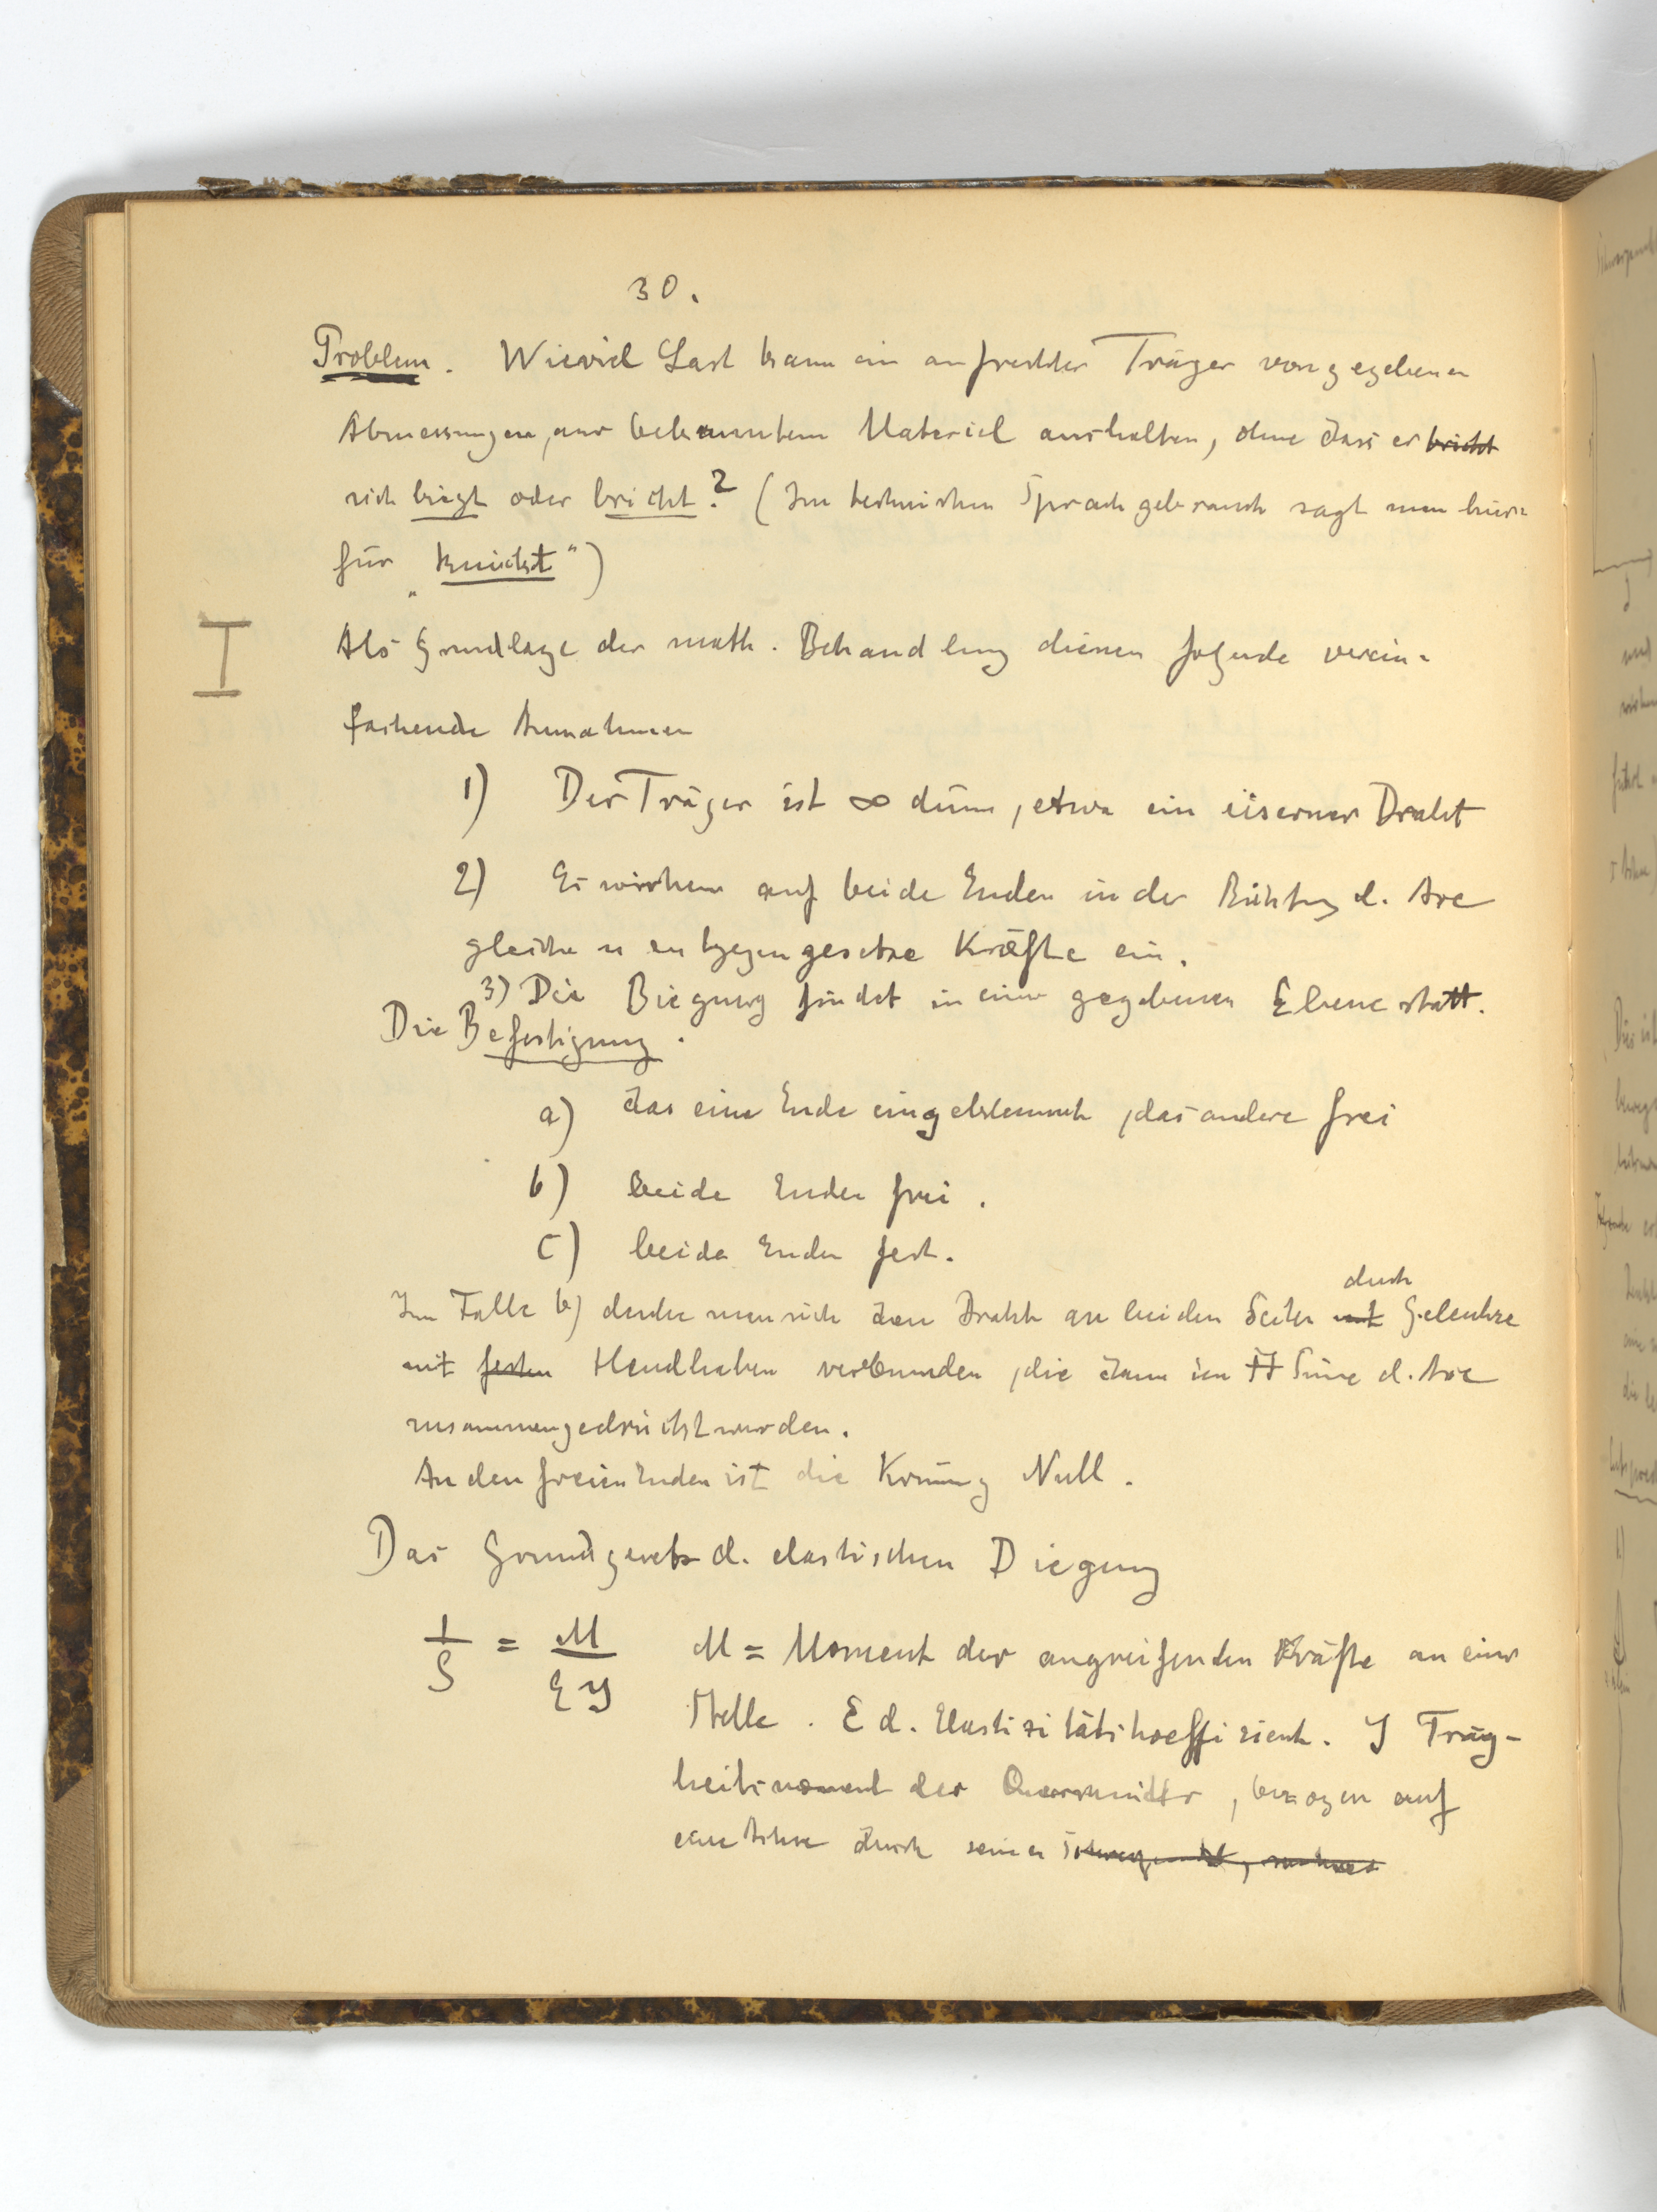 30.
Problem. Wieviel Last kann ein aufrechter Träger von gegebenen
Abmessungen, aus bekanntem Material aushalten, ohne dass er bricht
sich biegt oder bricht? (Im technischen Sprachgebrauch sagt man hier=
für „knickt“)
I
Als Grundlage der math. Behandlung dienen folgende verein=
fachende Annahmen
1) Der Träger ist ∞ dünn, etwa ein eiserner Draht
2) Es wirken auf beide Enden in der Richtung d. Axe
gleiche u entgegengesetze Kräfte ein.
3) Die Biegung findet in einer gegebenen Ebene statt.
Die Befestigung.
a) das eine Ende eingeklemmt, das andere frei
b) beide Enden frei.
c) beide Enden fest.
durch
Im Falle b) denke man sich den Draht an beiden Seiten mit Gelenke
mit festen Handhaben verbunden, die dann im Sinne d. Axe
zusammengedrückt werden.
An den freien Enden ist die Krümg Null.
Das Grundgesetz d. elastischen Biegung
1/ρ = M/EJ M = Moment der angreifenden Kräfte an einer
Stelle. E d. Elastizitätskoeffizient. J Träg-
heitsmoment des Querschnitts, bezogen auf
eine Achse durch seinen Schwerpunkt,